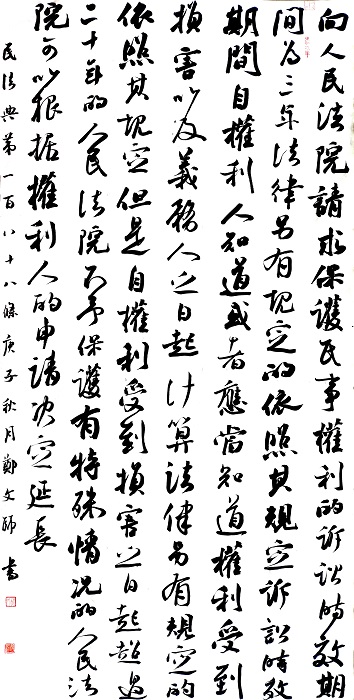 向人民法院請求保護民事權利的訴訟時效期
间为三年法律另有规定的依照其規定訴訟時效
期間自權利人知道或者應當知道權利受到
損害以及義務人之日起计算法律另有規定的
依照其规定但是自權利受到損害之日起超過
二十年的人民法院不予保護有特殊情况的人民法
院可以根据權利人的申請决定延長
民法典第一百八十八條庚子秋月鄭文師書